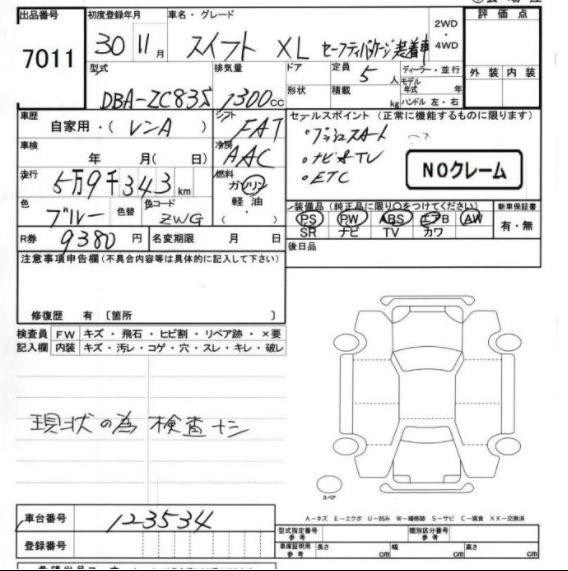 出品番号 初度登録年月 車名・グレード 2WD・4WD 評価点
7011 30年11月 スイフト XL セーフティパッケージ装着車
型式 排気量 ドア形状 定員 5人 積載 kg ディーラー・並行 モデル年式 年 ハンドル 左・右 外装 内装
DBA-ZC83S 1300cc
車歴 自家用・(レンA) シフト FAT セールスポイント(正常に機能するものに限ります)
・プッシュスタート
車検 年 月(日) 冷房 AAC ・ナビ&TV NOクレーム
走行 5万9千343km 燃料 ガソリン 軽油 ・( ) ・ETC
色 ブルー 色替 色コード ZWG 装備品(純正品に限り○をつけてください) 新車保証書
PS PW ABS エアB AW 有・無
SR ナビ TV カワ
R券 9380円 名変期限 月 日 後日品
注意事項申告欄(不具合内容等は具体的に記入して下さい)
修復歴 有〔箇所 〕
検査員 FW キズ・飛石・ヒビ割・リペア跡・×要
記入欄 内装 キズ・汚レ・コゲ・穴・スレ・キレ・破レ
現状の為 検査ナシ
スペア
A-キズ E-エクボ U-凹み W-補修跡 S-サビ C-腐食 XX-交換済
車台番号 123534 型式指定番号 参考 類別区分番号 参考
登録番号 車庫証明用 参考 長さ cm 幅 cm 高さ cm